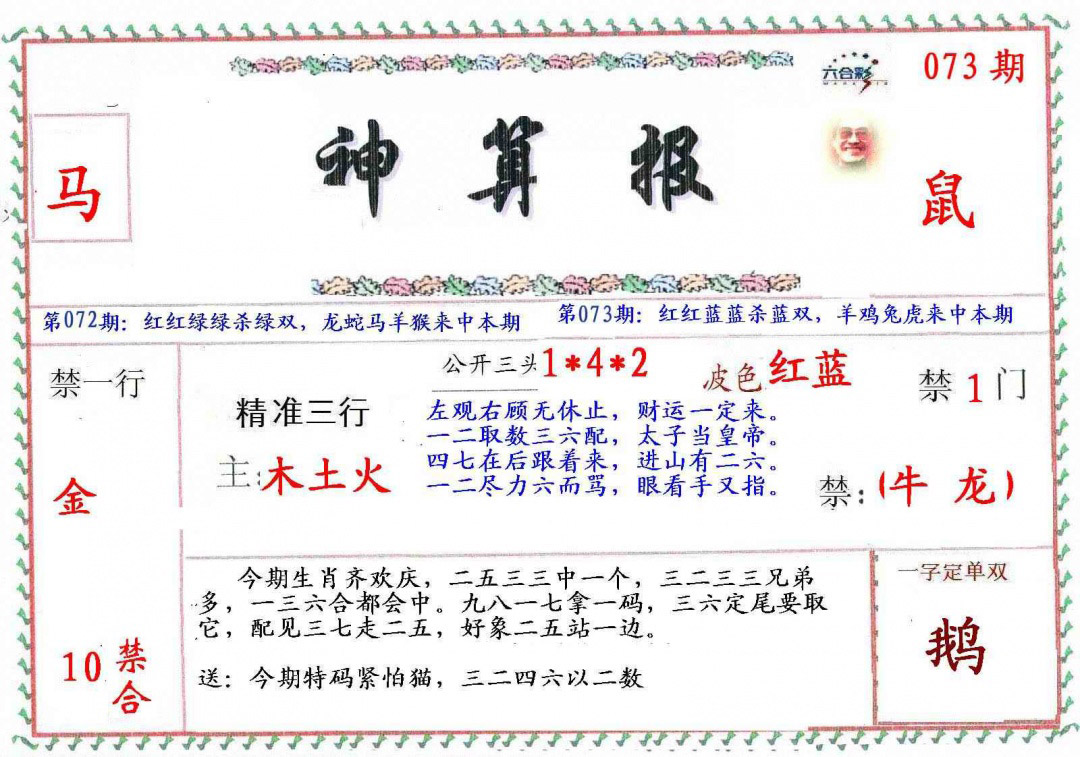 六合彩
073期
马
神算报
鼠
第072期：红红绿绿杀绿双，龙蛇马羊猴来中本期
第073期：红红蓝蓝杀蓝双，羊鸡兔虎来中本期
禁一行
金
10禁合
精准三行
主：木土火
公开三头1*4*2
波色红蓝
左观右顾无休止，财运一定来。
一二取数三六配，太子当皇帝。
四七在后跟着来，进山有二六。
一二尽力六而骂，眼看手又指。
禁1门
禁：(牛 龙)
今期生肖齐欢庆，二五三三中一个，三二三三兄弟
多，一三六合都会中。九八一七拿一码，三六定尾要取
它，配见三七走二五，好象二五站一边。
送：今期特码紧怕猫，三二四六以二数
一字定单双
鹅